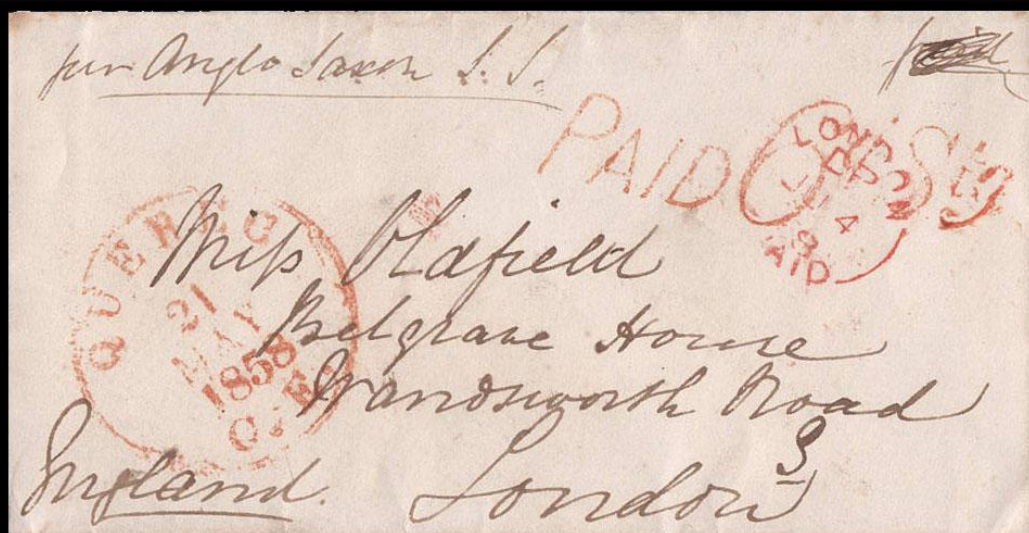 per Anglo Saxon S.S.
paid
PAID 6 Stg
LONDON
JU 4
PAID
QUEBEC
21
MAY
1858
C.E.
Miss Oldfield
Belgrave House
Wandsworth Road
London
S
England.